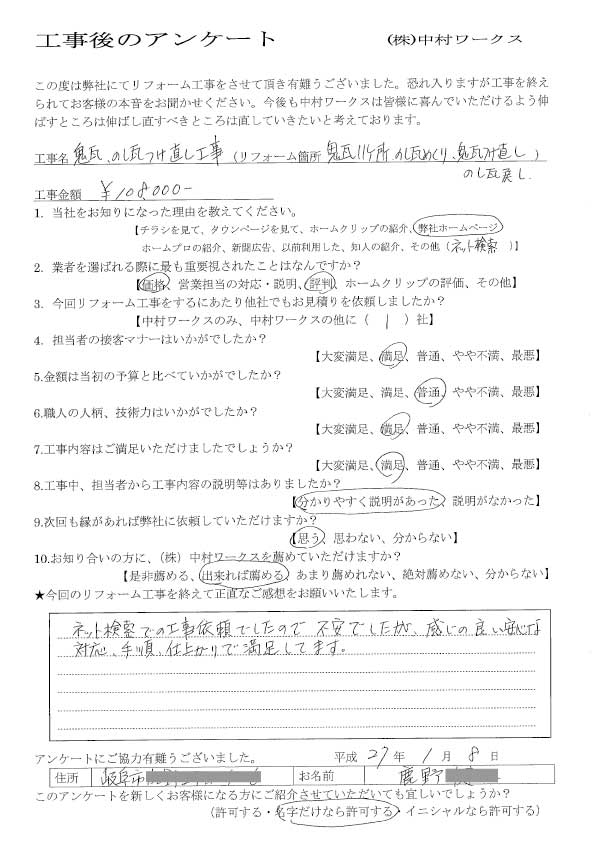 工事後のアンケート　(株)中村ワークス
この度は弊社にてリフォーム工事をさせて頂き有難うございました。恐れ入りますが工事を終え
られてお客様の本音をお聞かせください。今後も中村ワークスは皆様に喜んでいただけるよう伸
ばすところは伸ばし直すべきところは直していきたいと考えております。
工事名 鬼瓦、のし瓦つけ直し工事（リフォーム箇所 鬼瓦1ケ所 のし瓦めくり、鬼瓦つけ直し）
のし瓦戻し
工事金額 ￥108,000-
1. 当社をお知りになった理由を教えてください。
【チラシを見て、タウンページを見て、ホームクリップの紹介、弊社ホームページ
ホームプロの紹介、新聞広告、以前利用した、知人の紹介、その他（ネット検索　）】
2. 業者を選ばれる際に最も重要視されたことはなんですか？
【価格、営業担当の対応・説明、評判、ホームクリップの評価、その他】
3. 今回リフォーム工事をするにあたり他社でもお見積りを依頼しましたか？
【中村ワークスのみ、中村ワークスの他に（　1　）社】
4. 担当者の接客マナーはいかがでしたか？
【大変満足、満足、普通、やや不満、最悪】
5.金額は当初の予算と比べていかがでしたか？
【大変満足、満足、普通、やや不満、最悪】
6.職人の人柄、技術力はいかがでしたか？
【大変満足、満足、普通、やや不満、最悪】
7.工事内容はご満足いただけましたでしょうか？
【大変満足、満足、普通、やや不満、最悪】
8.工事中、担当者から工事内容の説明等はありましたか？
【分かりやすく説明があった、説明がなかった】
9.次回も縁があれば弊社に依頼していただけますか？
【思う、思わない、分からない】
10.お知り合いの方に、（株）中村ワークスを薦めていただけますか？
【是非薦める、出来れば薦める、あまり薦めれない、絶対薦めない、分からない】
★今回のリフォーム工事を終えて正直なご感想をお願いいたします。
ネット検索での工事依頼でしたので 不安でしたが、感じの良い
対応、手順、仕上がりで満足してます。
アンケートにご協力有難うございました。　平成 27 年 1 月 8 日
住所 岐阜市　お名前 鹿野
このアンケートを新しくお客様になる方にご紹介させていただいても宜しいでしょうか？
（許可する・名字だけなら許可する・イニシャルなら許可する）